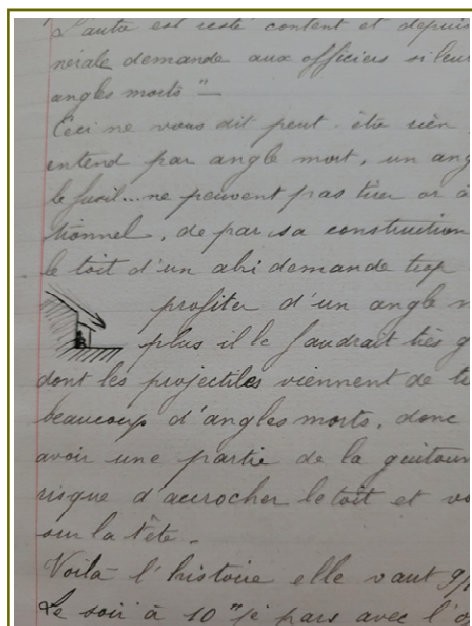 L'autre est resté content et depuis
nérale demande aux officiers si leur
angles morts" _
Ceci ne vous dit peut-être rien
entend par angle mort, un ang
le fusil... ne peuvent pas tirer or à
tionnel, de par sa construction
le toit d'un abi demande trop
profiter d'un angle m
plus il le faudrait très g
dont les projectiles viennent de t
beaucoup d'angles morts, donc
avoir une partie de la guitoun
risque d'accrocher le toit et vo
sur la tête.
Voilà l'histoire elle vaut
Le soir à 10 je pars avec l'o